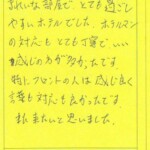 きれいな部屋で、とても過ごし
やすいホテルでした。ホテルマン
の対応もとても丁寧でいい
感じの方が多かったです。
特にフロントの人は感じ良く
言葉も対応も良かったです。
また来たいと思いました。